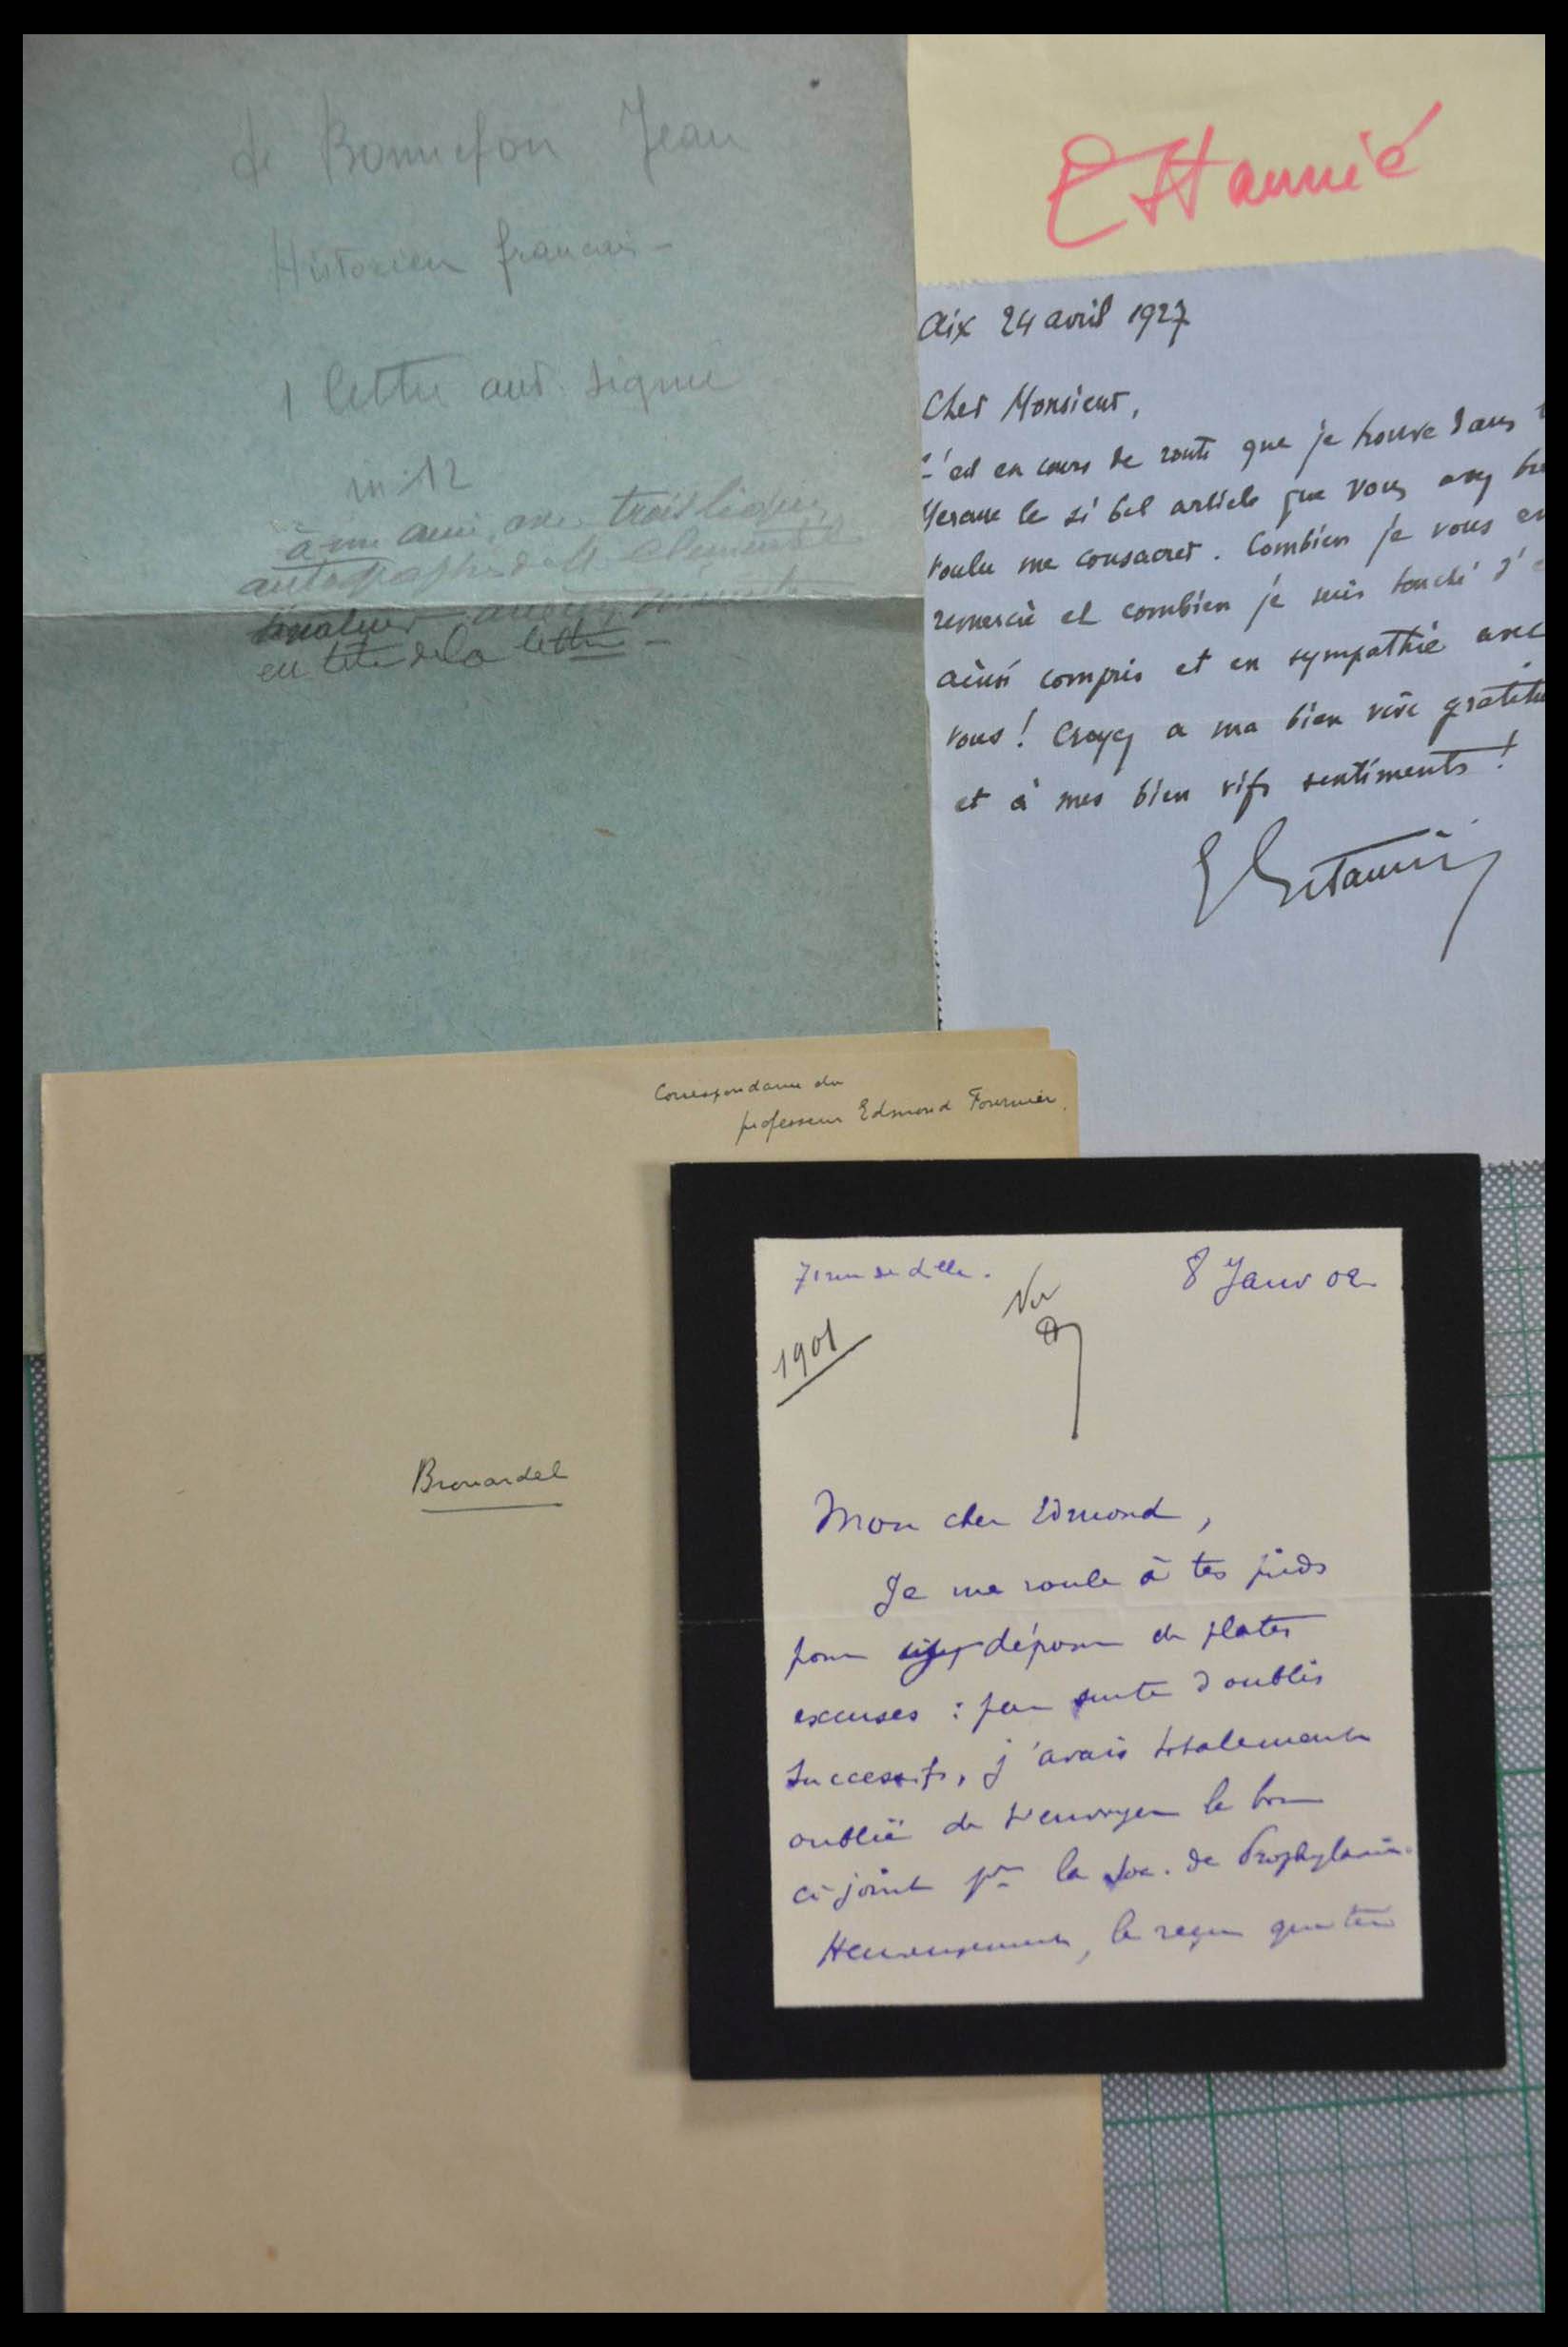 de Bonnefon Jean
Historien français -
1 lettre aut. signée
in-12
à un ami, avec trois lignes
autographes de M. Clementel
ministre
en tête de la lettre -
EStaunié
Aix 24 avril 1927
Cher Monsieur,
C'est en cours de route que je trouve dans
le si bel article que vous avez
voulu me consacrer. Combien je vous en
remercie et combien je suis touché d'
ainsi compris et en sympathie avec
vous ! Croyez à ma bien vive gratitu
et à mes bien vifs sentiments !
E Estaunié
Correspondance du
professeur Edmond Fournier.
Brouardel
71 rue de Lille.
8 Janv 02
Vu
1901
Mon cher Edmond,
Je me roule à tes pieds
pour déposer de plates
excuses : par suite d'oublis
successifs, j'avais totalement
oublié de t'envoyer le bon
ci-joint pr la Soc. de Prophylaxie.
Heureusement, le reçu